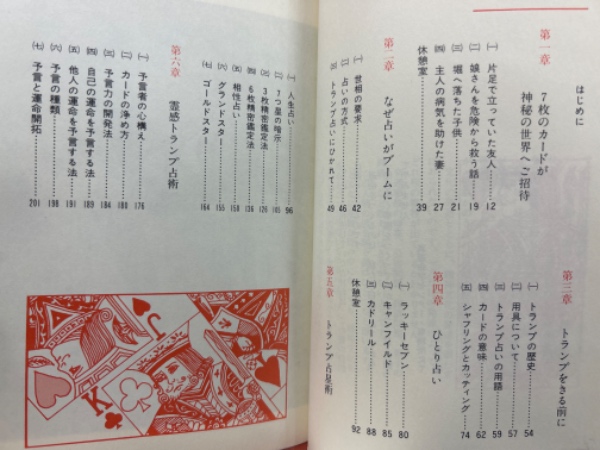 はじめに
第一章 7枚のカードが
神秘の世界へご招待
(一) 片足で立っていた友人……12
(二) 娘さんを危険から救う話……19
(三) 堀へ落ちた子供……21
(四) 主人の病気を助けた妻……27
休憩室……39
第二章 なぜ占いがブームに
(一) 世相の要求……42
(二) 占いの方式……46
(三) トランプ占いにひかれて……49
第三章 トランプをきる前に
(一) トランプの歴史……54
(二) 用具について……57
(三) トランプ占いの用語……59
(四) カードの意味……62
(五) シャフリングとカッティング……74
第四章 ひとり占い
(一) ラッキーセブン……80
(二) キャンフイルド……85
(三) カドリール……88
休憩室……92
第五章 トランプ占星術
(一) 人生占い……96
(二) 7つ星の暗示……105
(三) 3枚精密鑑定法……126
(四) 6枚精密鑑定法……136
(五) 相性占い……150
(六) グランドスター……155
(七) ゴールドスター……164
第六章 霊感トランプ占術
(一) 予言者の心構え……176
(二) カードの浄め方……180
(三) 予言力の開発法……184
(四) 自己の運命を予言する法……189
(五) 他人の運命を予言する法……191
(六) 予言の種類……198
(七) 予言と運命開拓……201
K